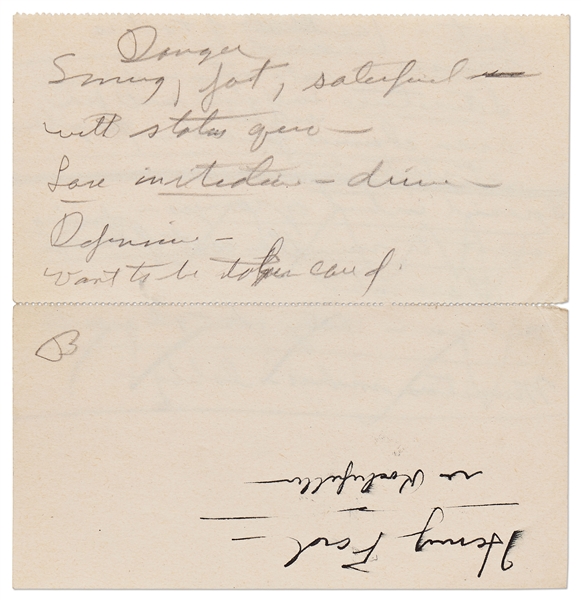 Danger
Smug, fat, satisfied
with status quo —
Lose initiative — drive —
Defensive —
Want to be taken care of.
B
Henry Ford —
vs Rockefeller